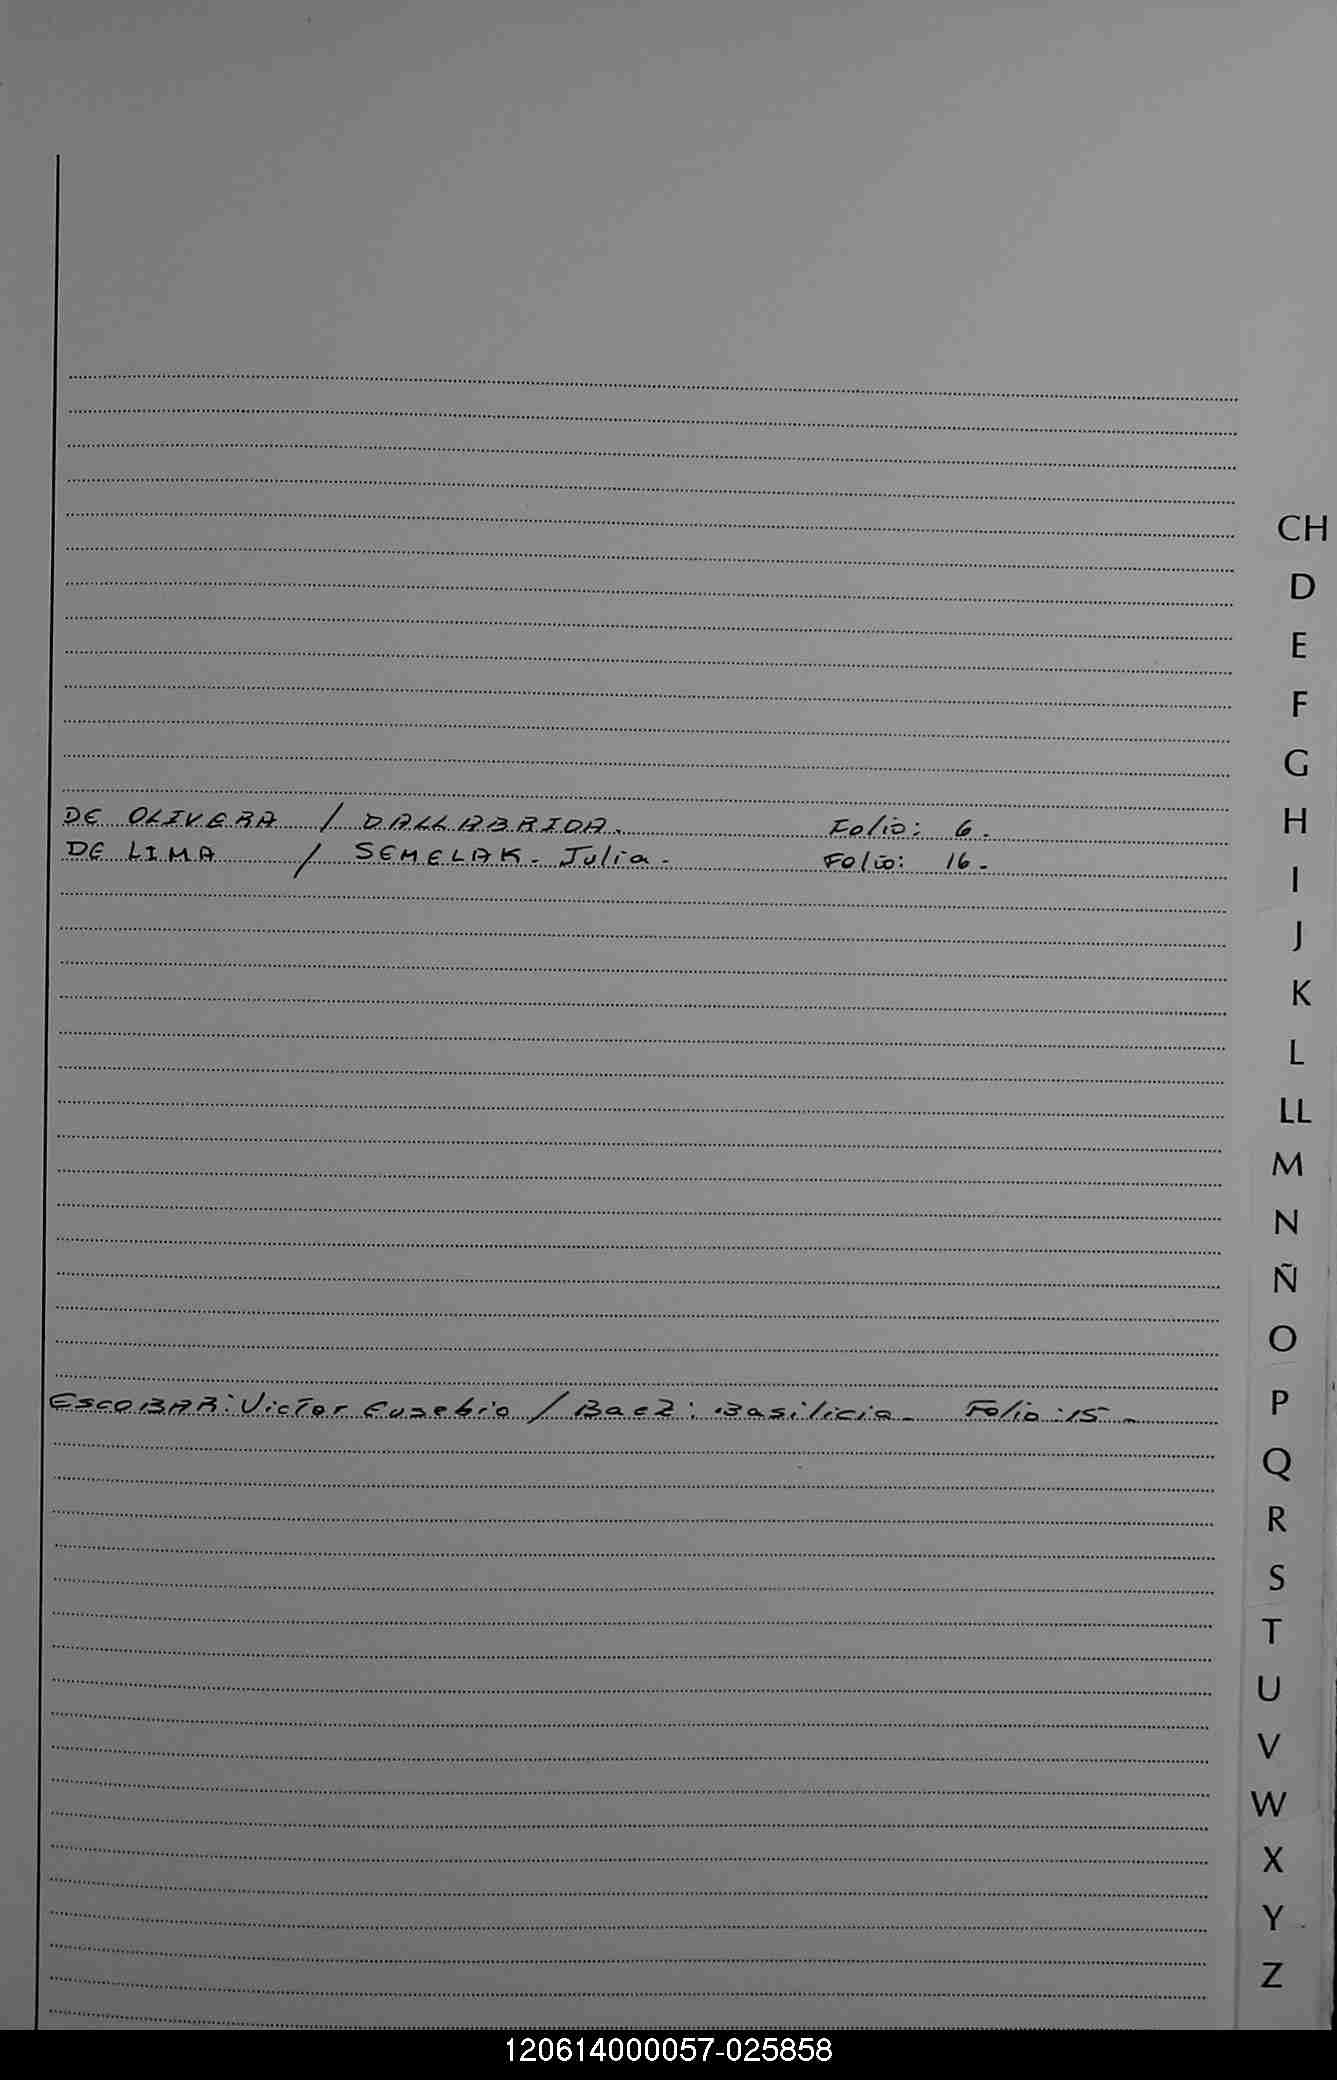 CH
D
E
F
G
DE OLIVERA / DALLABRIDA. Folio: 6.
H
DE LIMA / SEMELAK. Julia. Folio: 16.
I
J
K
L
LL
M
N
Ñ
O
ESCOBAR: Victor Eusebio / Baez: Basilicia. Folio: 15.
P
Q
R
S
T
U
V
W
X
Y
Z
120614000057-025858